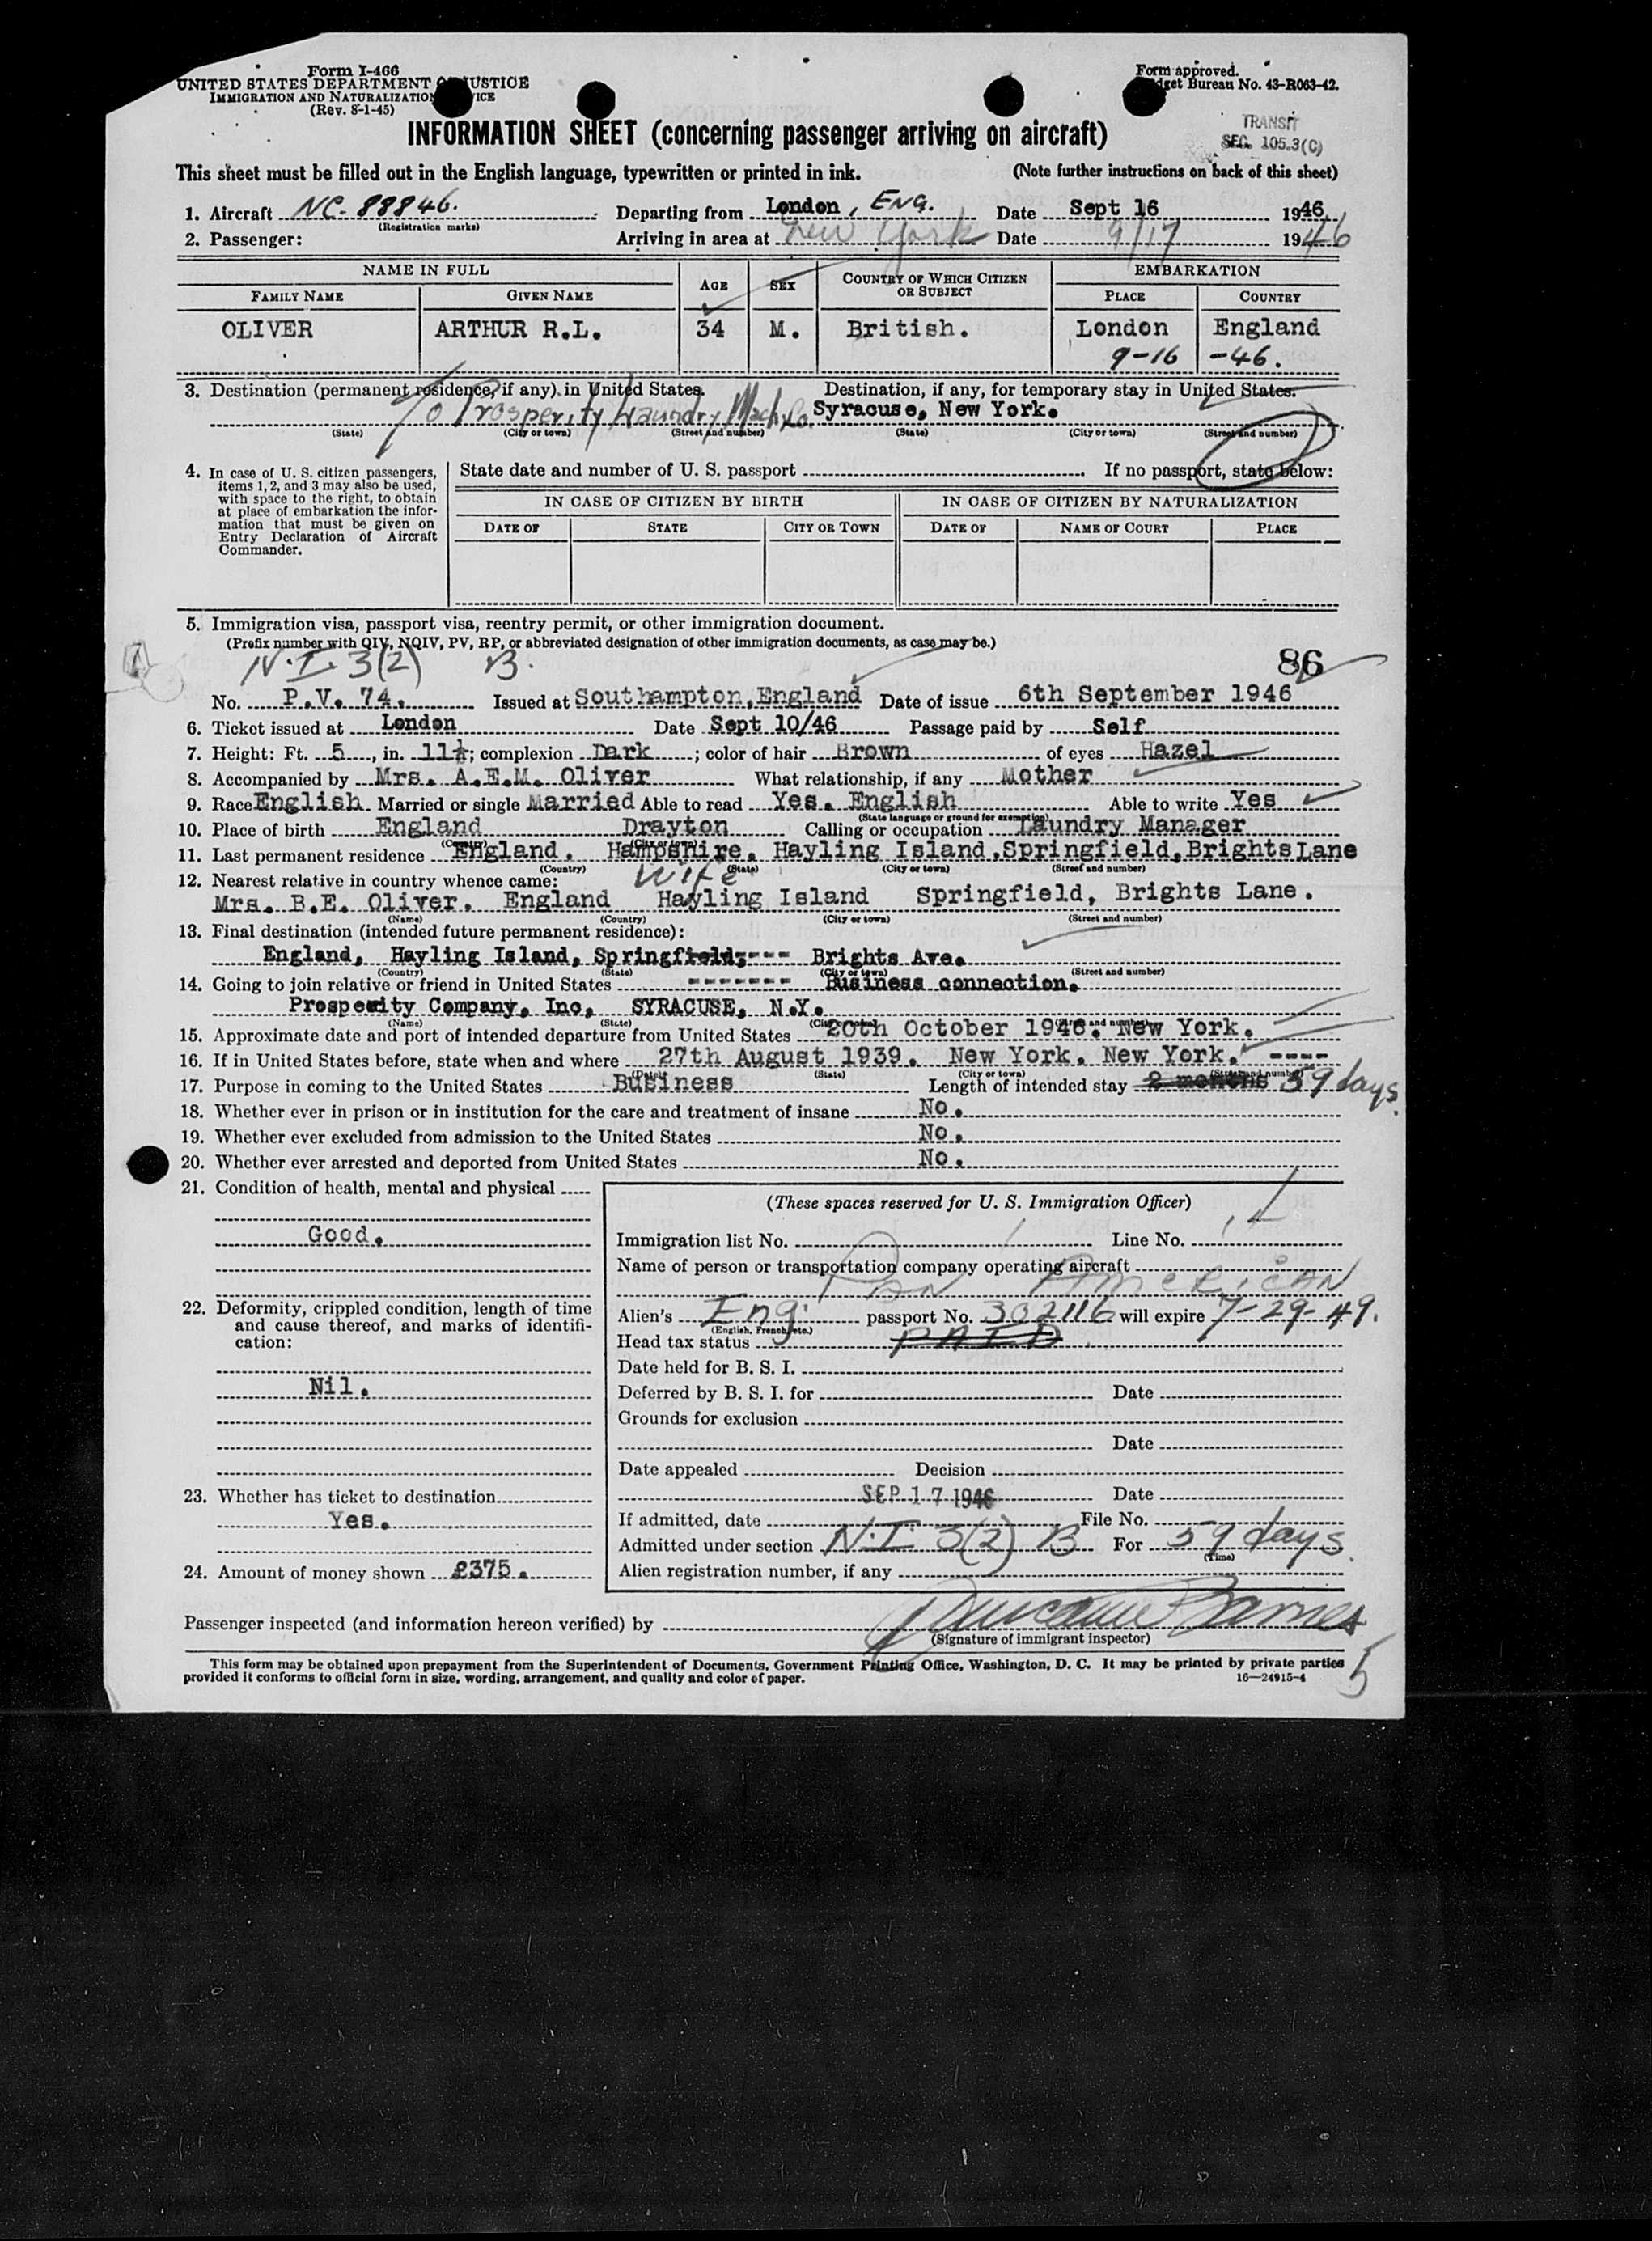 Form I-466
UNITED STATES DEPARTMENT OF JUSTICE
IMMIGRATION AND NATURALIZATION SERVICE
(Rev. 8-1-45)
Form approved.
Budget Bureau No. 43-R063-42.
TRANSIT
SEC. 105.3(C)
INFORMATION SHEET (concerning passenger arriving on aircraft)
This sheet must be filled out in the English language, typewritten or printed in ink. (Note further instructions on back of this sheet)
1. Aircraft NC-88846. Departing from London, ENG. Date Sept 16 1946
(Registration marks)
2. Passenger: Arriving in area at New York Date 9/17 1946
NAME IN FULL AGE SEX COUNTRY OF WHICH CITIZEN OR SUBJECT EMBARKATION
FAMILY NAME GIVEN NAME PLACE COUNTRY
OLIVER ARTHUR R.L. 34 M. British. London England
9-16 -46.
3. Destination (permanent residence, if any) in United States. Destination, if any, for temporary stay in United States.
℅ Prosperity Laundry Mach. Co. Syracuse, New York.
(State) (City or town) (Street and number) (State) (City or town) (Street and number)
4. In case of U. S. citizen passengers, items 1, 2, and 3 may also be used, with space to the right, to obtain at place of embarkation the information that must be given on Entry Declaration of Aircraft Commander.
State date and number of U. S. passport If no passport, state below:
IN CASE OF CITIZEN BY BIRTH IN CASE OF CITIZEN BY NATURALIZATION
DATE OF STATE CITY OR TOWN DATE OF NAME OF COURT PLACE
5. Immigration visa, passport visa, reentry permit, or other immigration document.
(Prefix number with QIV, NQIV, PV, RP, or abbreviated designation of other immigration documents, as case may be.)
N.I. 3(2) B. 86
No. P.V. 74. Issued at Southampton, England Date of issue 6th September 1946
6. Ticket issued at London Date Sept 10/46 Passage paid by Self
7. Height: Ft. 5, in. 11½; complexion Dark; color of hair Brown of eyes Hazel
8. Accompanied by Mrs. A.E.M. Oliver What relationship, if any Mother
9. Race English. Married or single Married Able to read Yes. English Able to write Yes
(State language or ground for exemption)
10. Place of birth England Drayton Calling or occupation Laundry Manager
(Country) (City or town)
11. Last permanent residence England. Hampshire. Hayling Island. Springfield, Brights Lane
(Country) (State) (City or town) (Street and number)
12. Nearest relative in country whence came: Wife
Mrs. B.E. Oliver. England Hayling Island Springfield, Brights Lane.
(Name) (Country) (City or town) (Street and number)
13. Final destination (intended future permanent residence):
England, Hayling Island, Springfield;--- Brights Ave.
(Country) (State) (City or town) (Street and number)
14. Going to join relative or friend in United States ------- Business connection.
Prosperity Company, Inc, SYRACUSE, N.Y.
(Name) (State) (City or town) (Street and number)
15. Approximate date and port of intended departure from United States 20th October 1946. New York.
16. If in United States before, state when and where 27th August 1939. New York. New York. ----
(Date) (State) (City or town) (Street and number)
17. Purpose in coming to the United States Business Length of intended stay 2 months 59 days.
18. Whether ever in prison or in institution for the care and treatment of insane No.
19. Whether ever excluded from admission to the United States No.
20. Whether ever arrested and deported from United States No.
21. Condition of health, mental and physical
Good.
22. Deformity, crippled condition, length of time and cause thereof, and marks of identification:
Nil.
23. Whether has ticket to destination
Yes.
24. Amount of money shown £375.
(These spaces reserved for U. S. Immigration Officer)
Immigration list No. Line No.
Name of person or transportation company operating aircraft
PAN AMERICAN
Alien's Eng. passport No. 302116 will expire 7-29-49.
(English, French, etc.)
Head tax status PAID
Date held for B. S. I.
Deferred by B. S. I. for Date
Grounds for exclusion
Date
Date appealed Decision
SEP 17 1946 Date
If admitted, date File No.
Admitted under section N.I. 3(2) B For 59 days.
(Time)
Alien registration number, if any
Passenger inspected (and information hereon verified) by
(Signature of immigrant inspector)
This form may be obtained upon prepayment from the Superintendent of Documents, Government Printing Office, Washington, D. C. It may be printed by private parties
provided it conforms to official form in size, wording, arrangement, and quality and color of paper. 16—24915-4
5